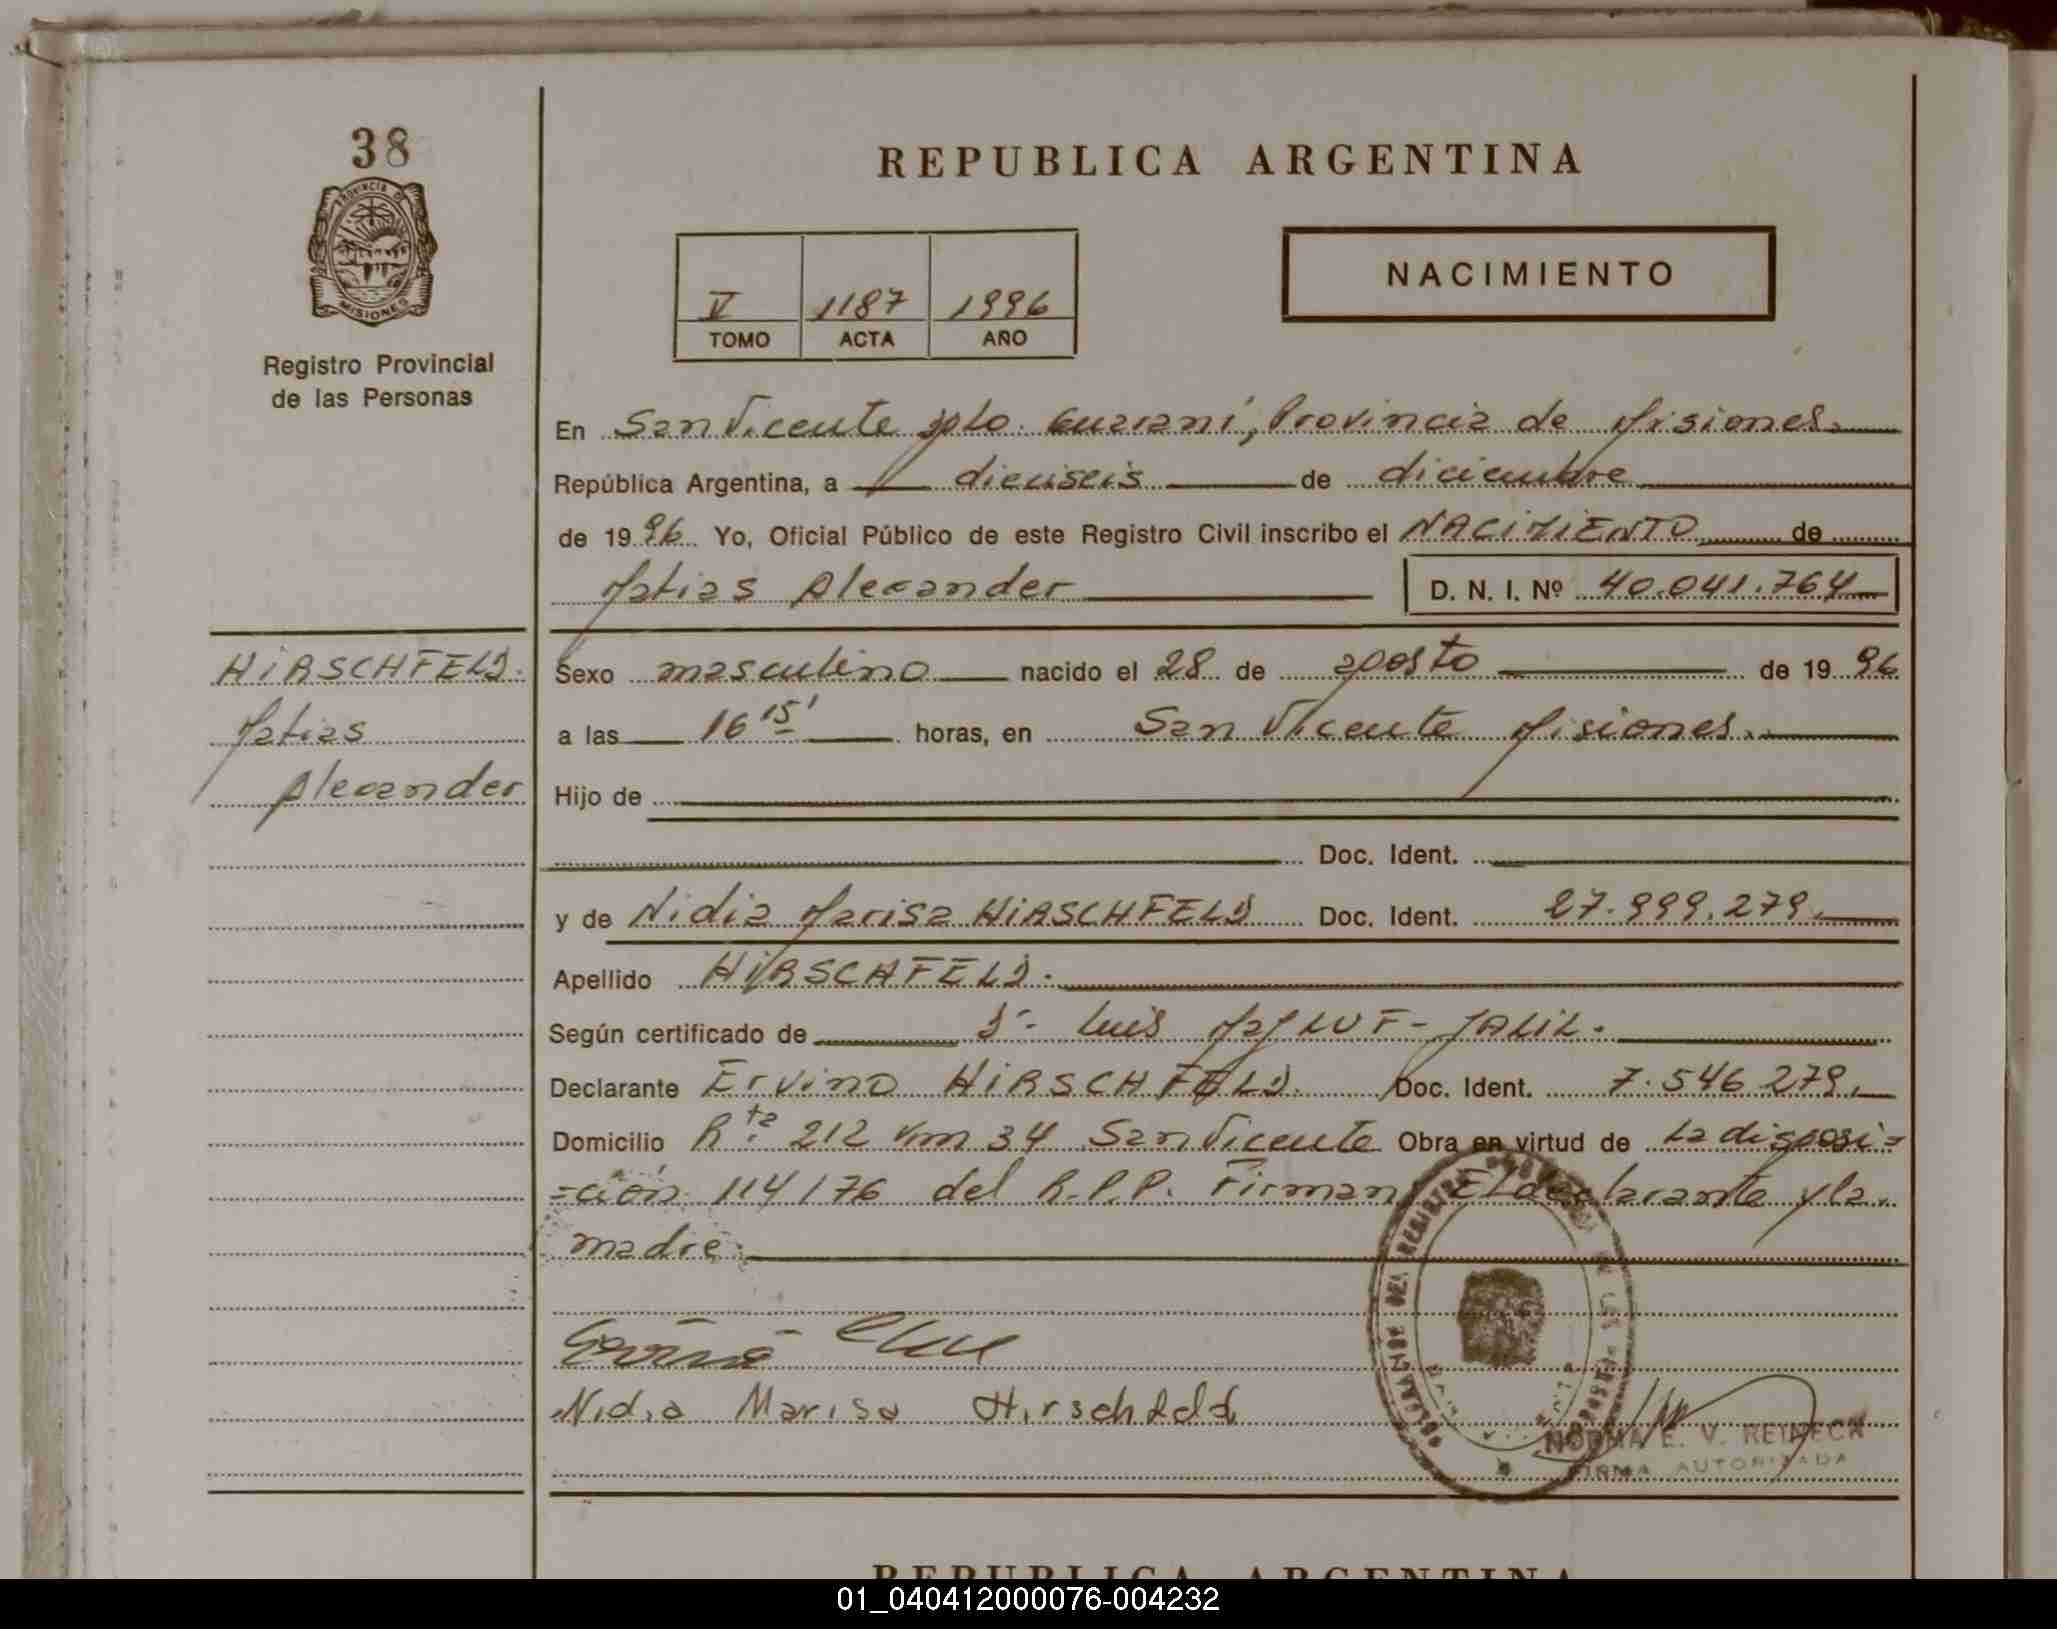 38
PROVINCIA DE
MISIONES
Registro Provincial
de las Personas
REPUBLICA ARGENTINA
V 1187 1996
TOMO ACTA AÑO
NACIMIENTO
En San Vicente Dpto. Guaraní, Provincia de Misiones.
República Argentina, a dieciseis de diciembre
de 19 96 Yo, Oficial Público de este Registro Civil inscribo el NACIMIENTO de
Matias Alexander D. N. I. Nº 40.041.764
HIRSCHFELD.
Matias
Alexander
Sexo masculino nacido el 28 de agosto de 19 96
a las 16 15' horas, en San Vicente Misiones.
Hijo de
Doc. Ident.
y de Nidia Marisa HIRSCHFELD Doc. Ident. 27.999.279.
Apellido HIRSCHFELD.
Según certificado de Luis JALIL.
Declarante Ervino HIRSCHFELD. Doc. Ident. 7.546.279.
Domicilio Rta. 212 Km 34 San Vicente Obra en virtud de La disposi=
=ción 114/76 del R.P.P. Firman El declarante y la
madre.
Nidia Marisa
NORMA E. V. REINECK
FIRMA AUTORIZADA
REPUBLICA ARGENTINA
01_040412000076-004232